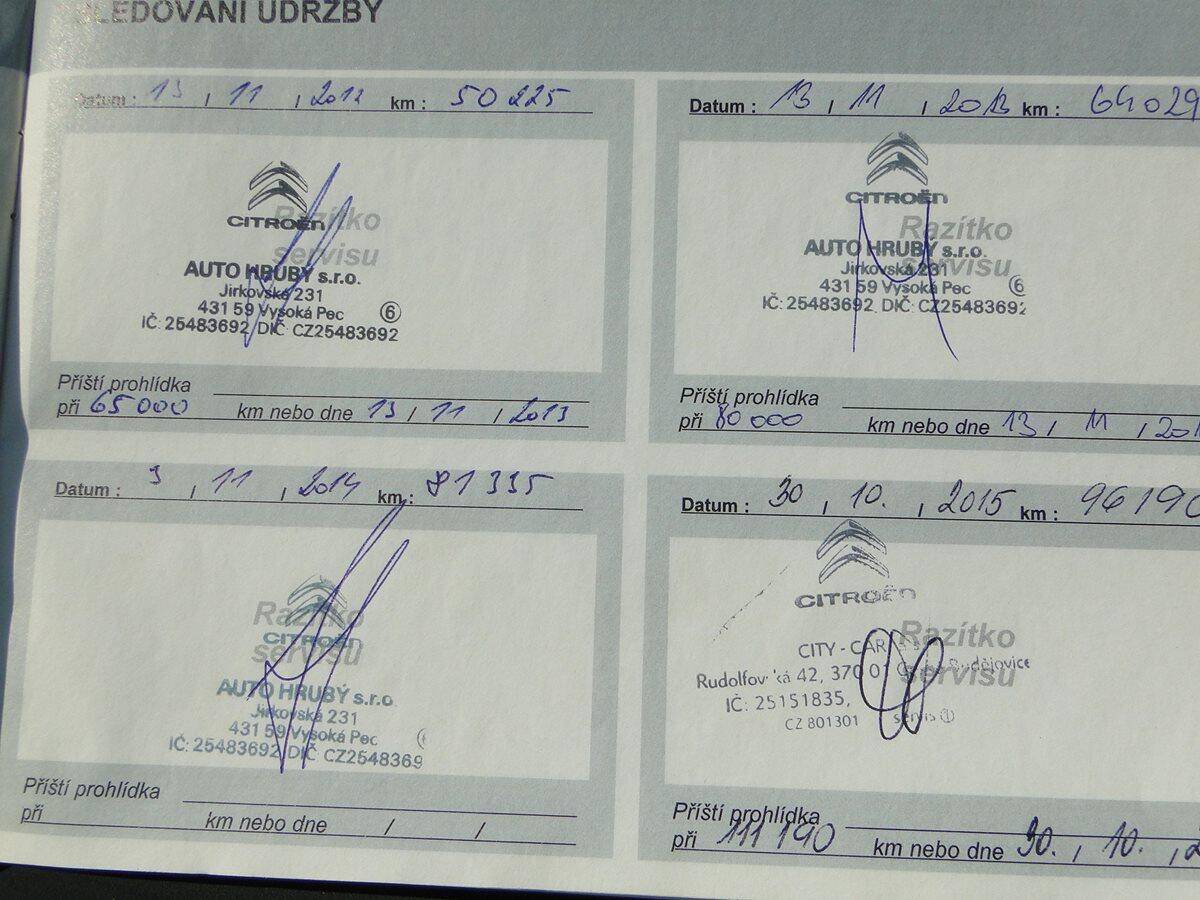 SLEDOVÁNÍ ÚDRŽBY
Datum : 13 / 11 / 2012 km : 50 225
CITROËN
Razítko
servisu
AUTO HRUBÝ s.r.o.
Jirkovská 231
431 59 Vysoká Pec 6
IČ: 25483692 DIČ: CZ25483692
Příští prohlídka
při 65 000 km nebo dne 13 / 11 / 2013
Datum : 13 / 11 / 2013 km : 64 029
CITROËN
Razítko
servisu
AUTO HRUBÝ s.r.o.
Jirkovská 231
431 59 Vysoká Pec 6
IČ: 25483692 DIČ: CZ25483692
Příští prohlídka
při 80 000 km nebo dne 13 / 11 / 201
Datum : 3 / 11 / 2014 km : 81 335
Razítko
CITROËN
servisu
AUTO HRUBÝ s.r.o.
Jirkovská 231
431 59 Vysoká Pec
IČ: 25483692 DIČ: CZ2548369
Příští prohlídka
při km nebo dne / /
Datum : 30 / 10. / 2015 km : 96190
CITROËN
Razítko
servisu
CITY - CAR
Rudolfov ká 42, 370 0 Budějovice
IČ: 25151835,
CZ 801301 servis 1
Příští prohlídka
při 111 190 km nebo dne 30. / 10. / 2